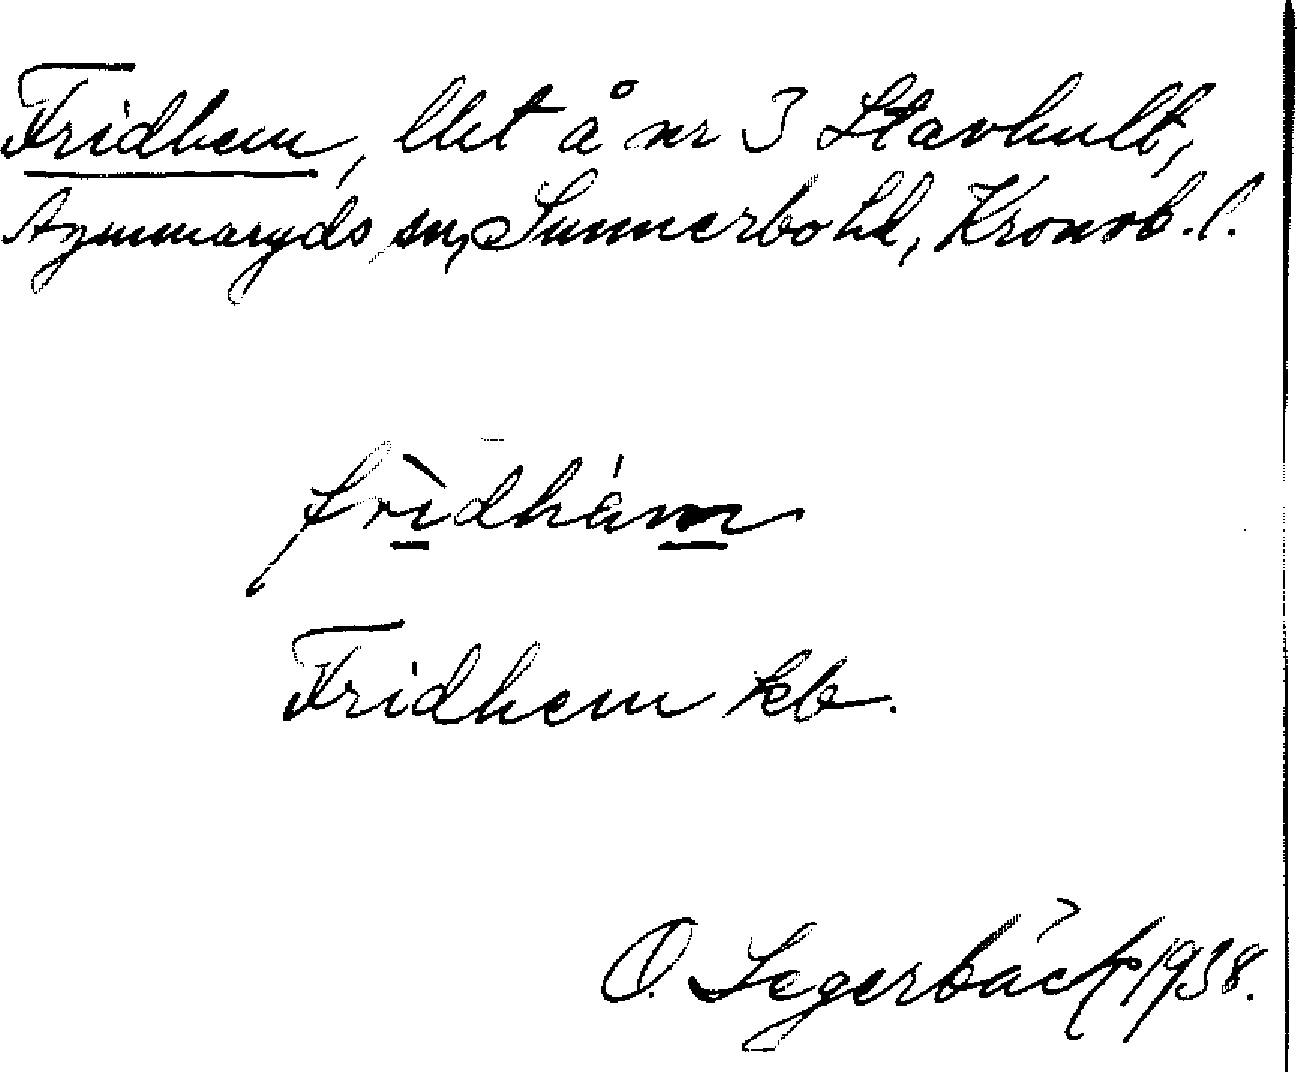 Fridhem, lht å nr 3 Stavhult,
Agunnaryds sn, Sunnerbo hd, Kronob. l.
frìdhám
Fridhem kb.
O. Segerbäck 1938.